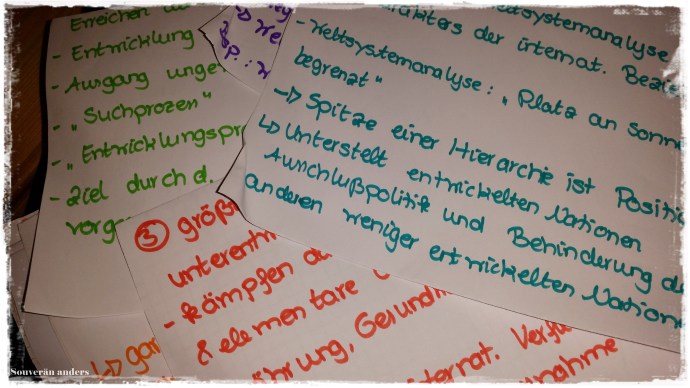 Erreichen
- Entwicklung
- Ausgang unge
- "Suchprozeß"
- "Entwicklungspr
- Ziel durch d.
vorge
akters der internat. Bezie
- Weltsystemanalyse: "Platz an Sonn
begrenzt"
-> Spitze einer Hierarchie ist Positi
↳ Unterstellt entwickelten Nationen
Ausschlußpolitik und Behinderung de
anderen weniger entwickelten Natione
③ größt
unterentw
- kämpfen
& elementare
ährung, Gesundh
internat. Verfü
nahme
↳ gar
Souverän anders